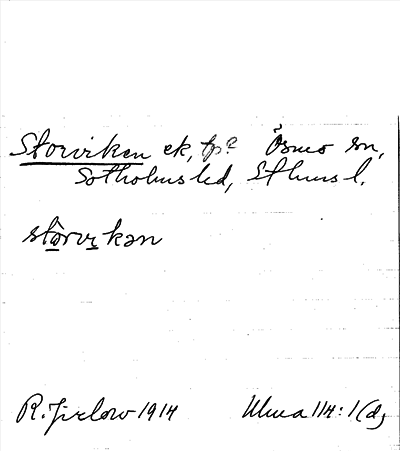 Storviken ek, tp? Ösmo sn,
Sotholms hd, Sthms l.
stọrvi̱kən
R. Jirlow 1914 Ulma 114:1(d,